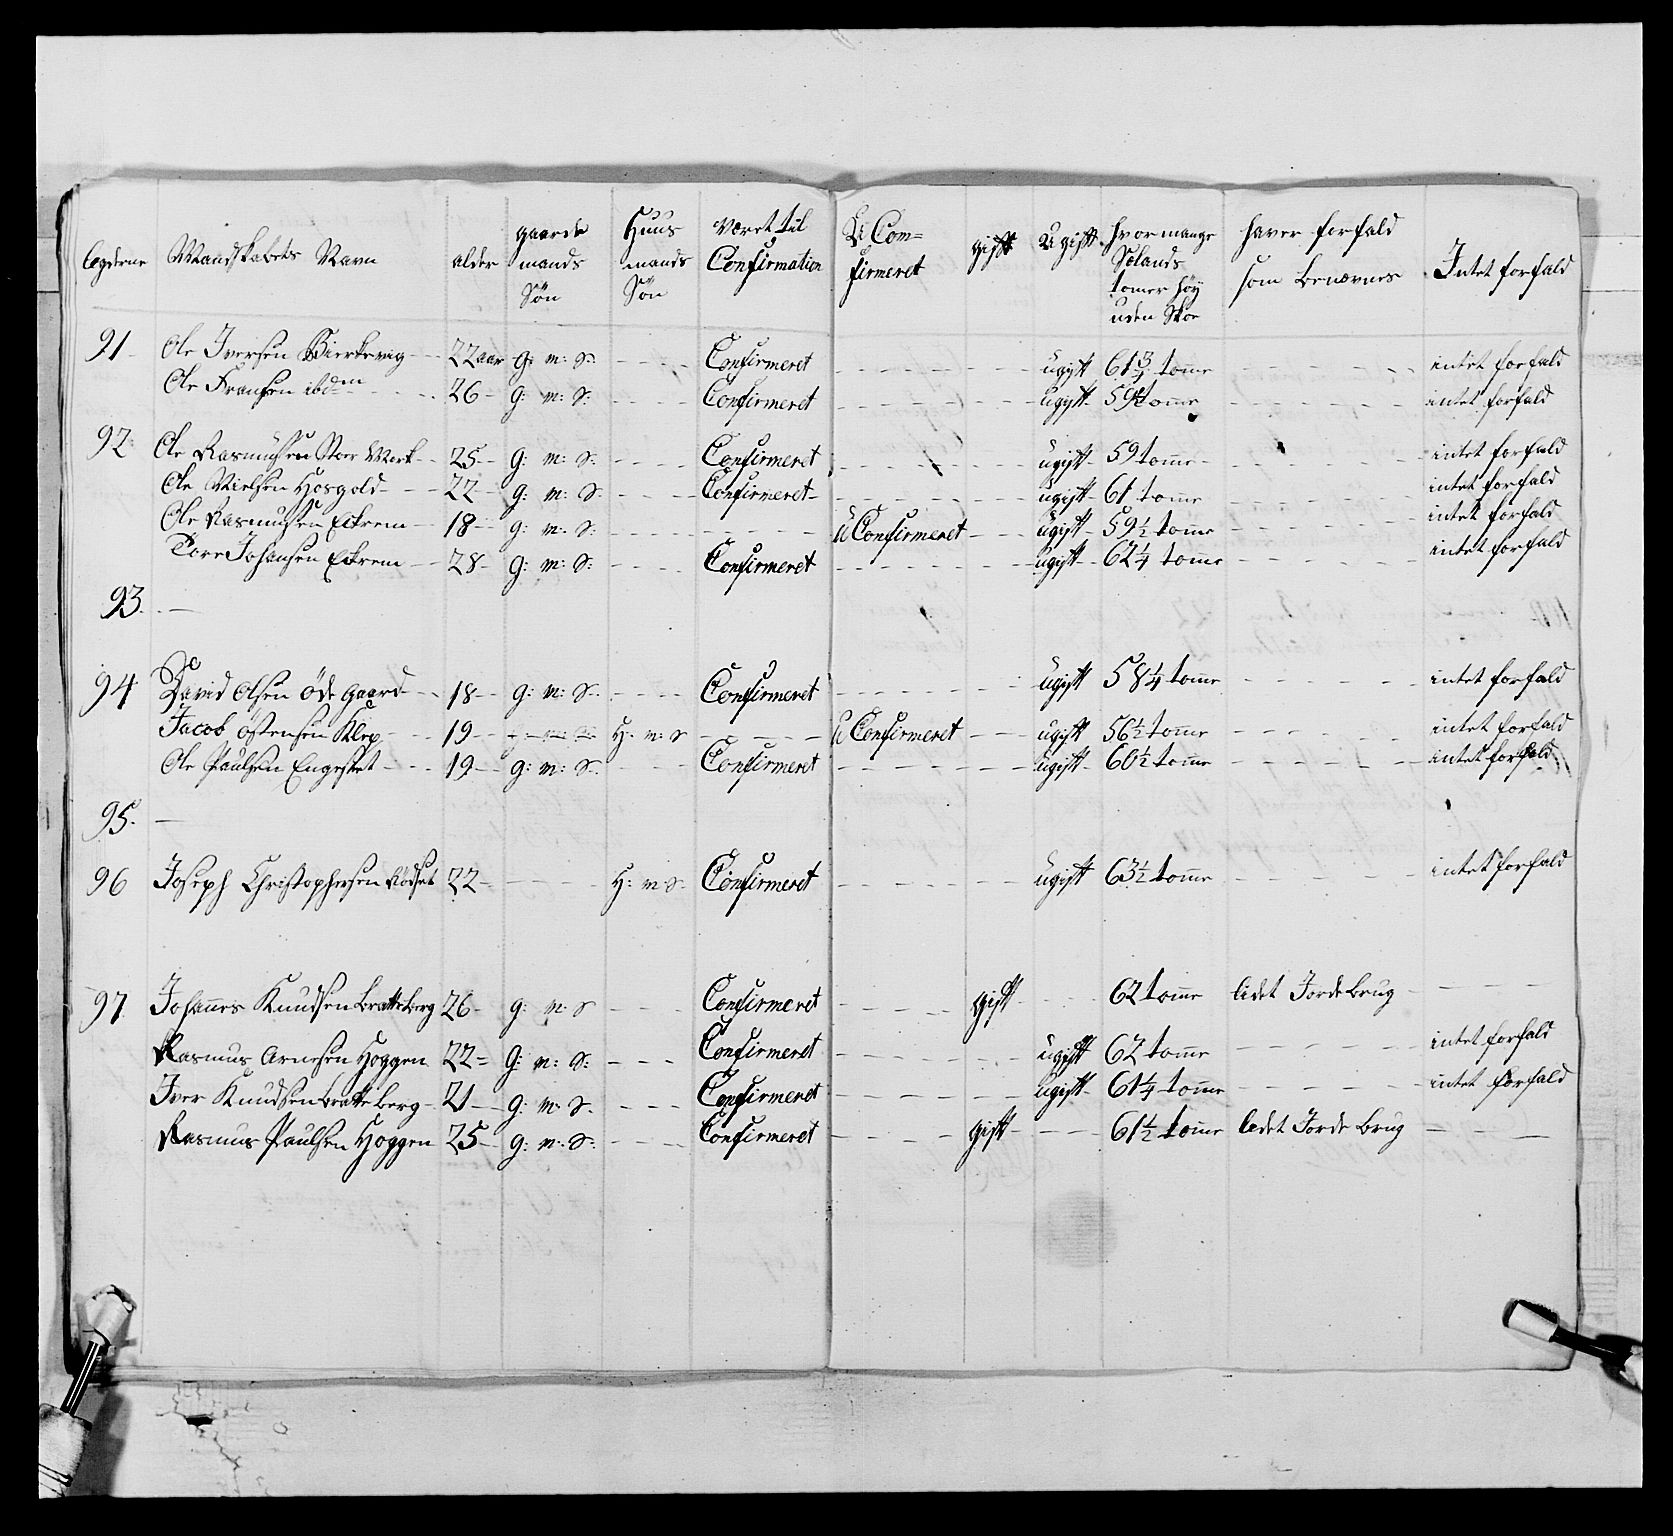 Legderne Mandskabets Navn alder gaards mands Søn Huus mands Søn Været til Confirmation U Com= firmeret gift Ugift hvor mange Sælands tomer høy uden Skoe haver forfald som benævnes Intet forfald
91 Ole Iversen Bierkevig 22 aar g: m: S: Confirmeret ugift 61 3/4 tome intet forfald
Ole Fransen ibdm 26 g: m: S: Confirmeret ugift 59 tome intet forfald
92 Ole Rasmusen Stor Werk 25 g: m: S: Confirmeret ugift 59 tome intet forfald
Ole Nielsen Hosgold 22 g: m: S: Confirmeret ugift 61 tome intet forfald
Ole Rasmusen Eckrem 18 g: m: S: U Confirmeret ugift 59 1/2 tome intet forfald
Tore Johansen Eckrem 28 g: m: S: Confirmeret ugift 62 1/4 tome intet forfald
93. —
94 David Olsen Øde Gaard 18 g: m: S: Confirmeret ugift 58 1/4 tome intet forfald
Jacob Østensen Klep 19 H: m: S U Confirmeret ugift 56 1/2 tome intet forfald
Ole Paulsen Engeset 19 g: m: S: Confirmeret ugift 60 1/2 tome intet forfald
95. —
96 Joseph Christophersen Rødset 22 H: m: S: Confirmeret ugift 63 1/2 tome intet forfald
97 Johannes Knudsen Bratteberg 26 g: m: S Confirmeret gift 62 tome lidet Jorde brug
Rasmus Arnesen Hoggen 22 g: m: S: Confirmeret ugift 62 tome intet forfald
Iver Knudsen Bratteberg 21 g: m: S. Confirmeret ugift 61 1/4 tome intet forfald
Rasmus Paulsen Hoggen 25 g: m: S: Confirmeret gift 61 1/2 tome lidet Jorde brug